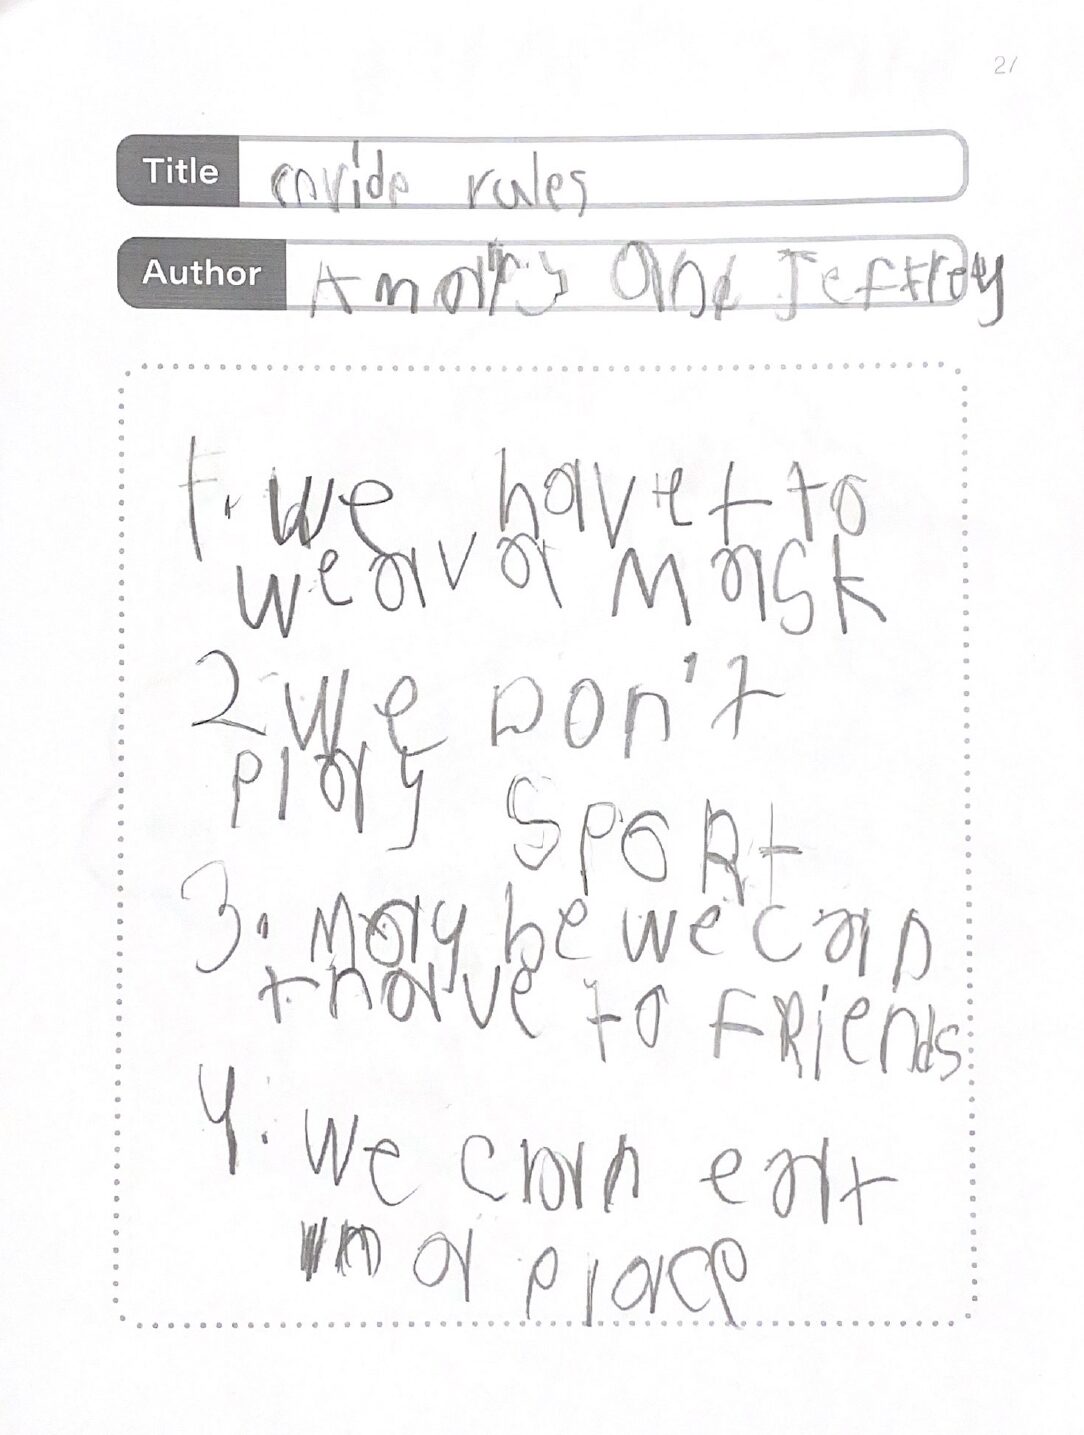 21
Title covide rules
Author Amarys and Jeffrey
1. we havet to
weavr a mask
2 we Don't
play SpoRt
3. May be we can
to FRiends
4. we can eat
in a place